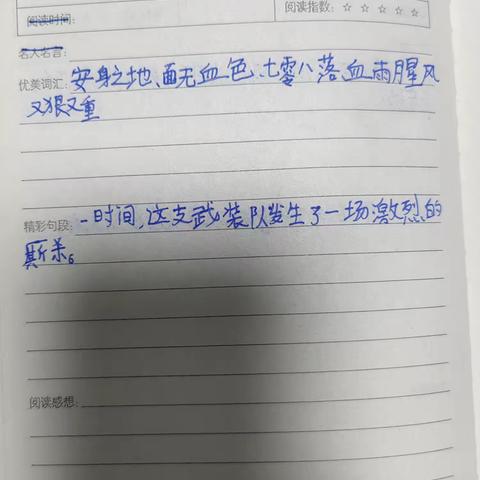 阅读时间: 阅读指数: ☆ ☆ ☆ ☆ ☆
名人名言:
优美词汇: 安身之地、面无血色、七零八落、血雨腥风
又狠又重
精彩句段: 一时间,这支武装队发生了一场激烈的
厮杀。
阅读感想: